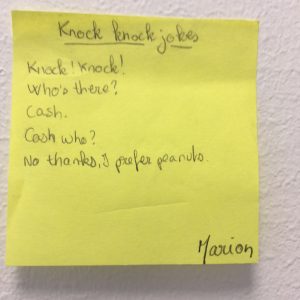 Knock knock jokes
Knock! Knock!
Who's there?
Cash.
Cash who?
No thanks, I prefer peanuts.
Marion